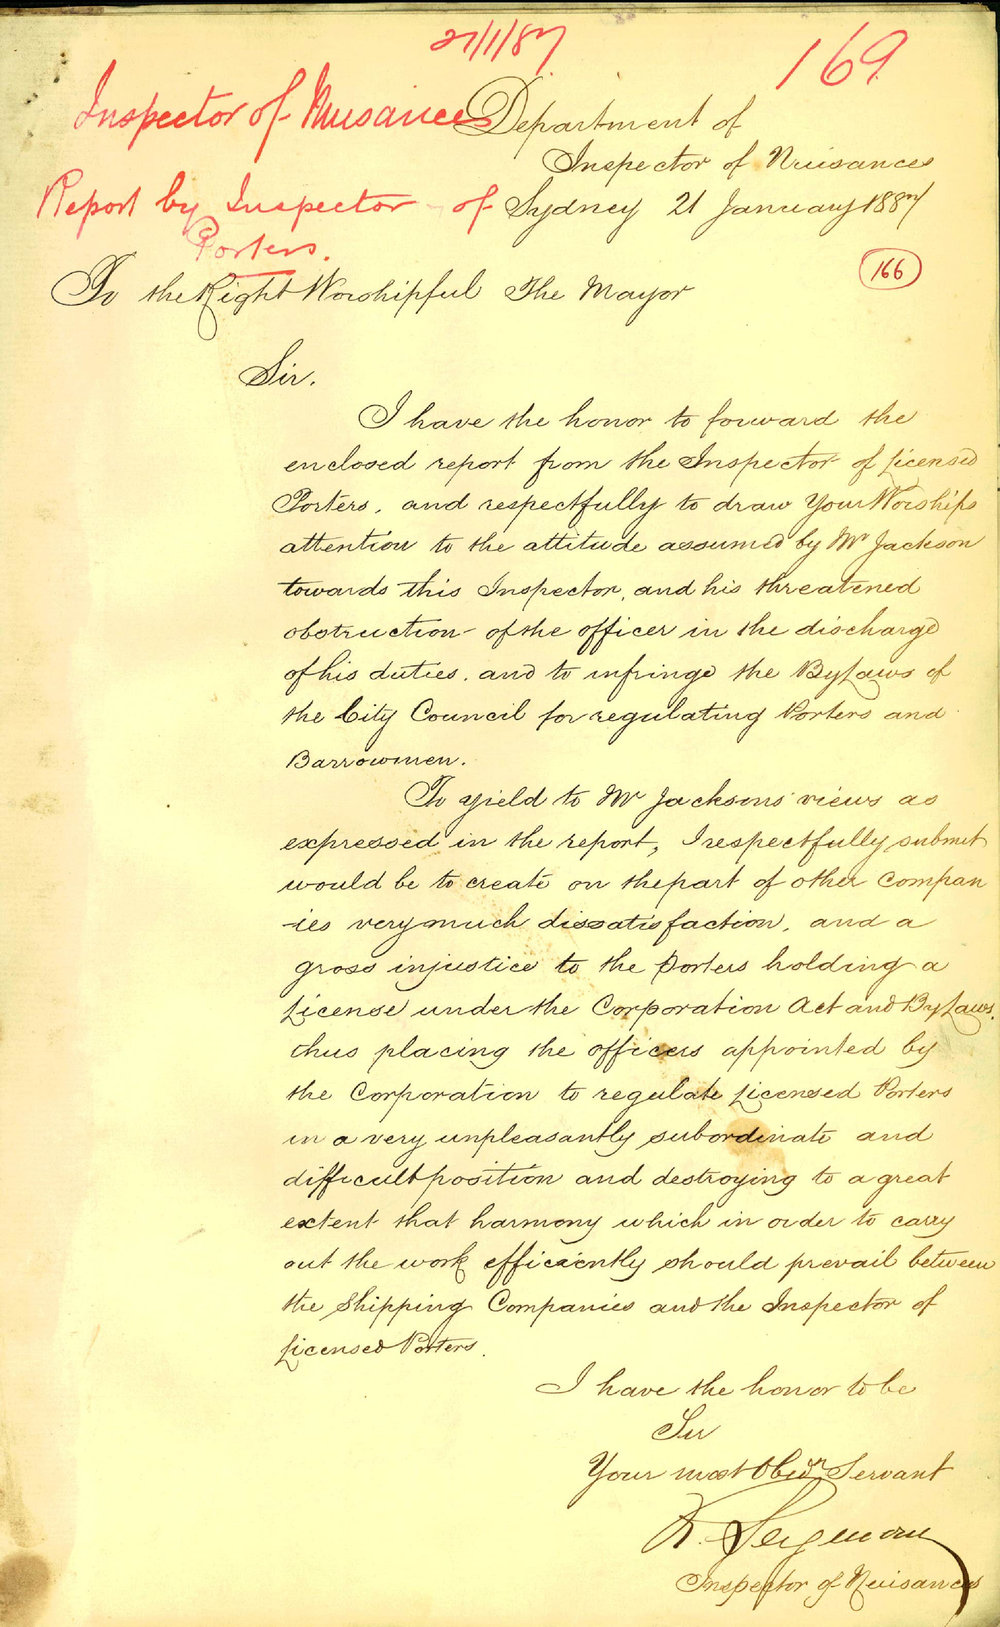 27/1/87
169
Inspector of Nuisances
Department of
Inspector of Nuisances
Report by Inspector of
Porters.
Sydney 21 January 1887
166
To the Right Worshipful The Mayor
Sir.
I have the honor to forward the
enclosed report from the Inspector of Licensed
Porters, and respectfully to draw Your Worships
attention to the attitude assumed by Mr Jackson
towards this Inspector, and his threatened
obstruction of the officer in the discharge
of his duties. and to infringe the ByLaws of
the City Council for regulating Porters and
Barrowmen.
To yield to Mr Jacksons views as
expressed in the report, I respectfully submit
would be to create on the part of other Compan
-ies very much dissatisfaction, and a
gross injustice to the Porters holding a
License under the Corporation Act and By Laws.
thus placing the officers appointed by
the Corporation to regulate Licensed Porters
in a very unpleasantly subordinate and
difficult position and destroying to a great
extent that harmony which in order to carry
out the work efficiently should prevail between
the Shipping Companies and the Inspector of
Licensed Porters.
I have the honor to be
Sir
Your most Obedn Servant
R. Seymour
Inspector of Nuisances